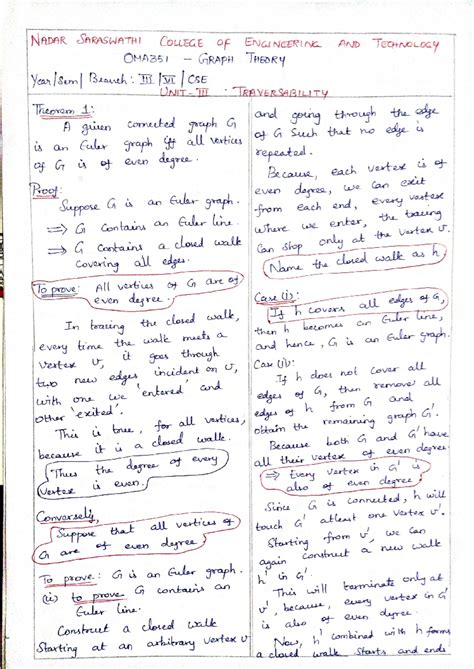 NADAR SARASWATHI COLLEGE OF ENGINEERING AND TECHNOLOGY
OMA351 - GRAPH THEORY
Year/Sem/Branch: III/VI/CSE
UNIT-III : TRAVERSABILITY
Theorem 1:
A given connected graph G
is an Euler graph iff all vertices
of G is of even degree.
Proof:
Suppose G is an Euler graph.
⇒ G contains an Euler line.
⇒ G contains a closed walk
covering all edges.
To prove: All vertices of G are of
even degree.
In tracing the closed walk,
every time the walk meets a
vertex v, it goes through
two new edges incident on v,
with one we 'entered' and
other 'exited'.
This is true, for all vertices,
because it is a closed walk.
Thus the degree of every
vertex is even.
Conversely,
Suppose that all vertices of
G are of even degree.
To prove: G is an Euler graph.
(ie) to prove G contains an
Euler line.
Construct a closed walk
Starting at an arbitrary vertex v
and going through the edge
of G such that no edge is
repeated.
Because, each vertex is of
even degree, we can exit
from each end, every vertex
where we enter, the tracing
can stop only at the vertex v.
Name the closed walk as h.
Case (i):
If h covers all edges of G,
then h becomes an Euler line,
and hence, G is an Euler graph.
Case (ii):
If h does not cover all
edges of G, then remove all
edges of h from G and
obtain the remaining graph G'.
Because both G and G' have
all their vertex of even degree.
⇒ Every vertex in G' is
also of even degree.
Since G is connected, h will
touch G' atleast one vertex v'.
Starting from v', we can
again construct a new walk
h' in G'.
This will terminate only at
v', because, every vertex in G'
is also of even degree.
Now, h' combined with h forms
a closed walk starts and ends